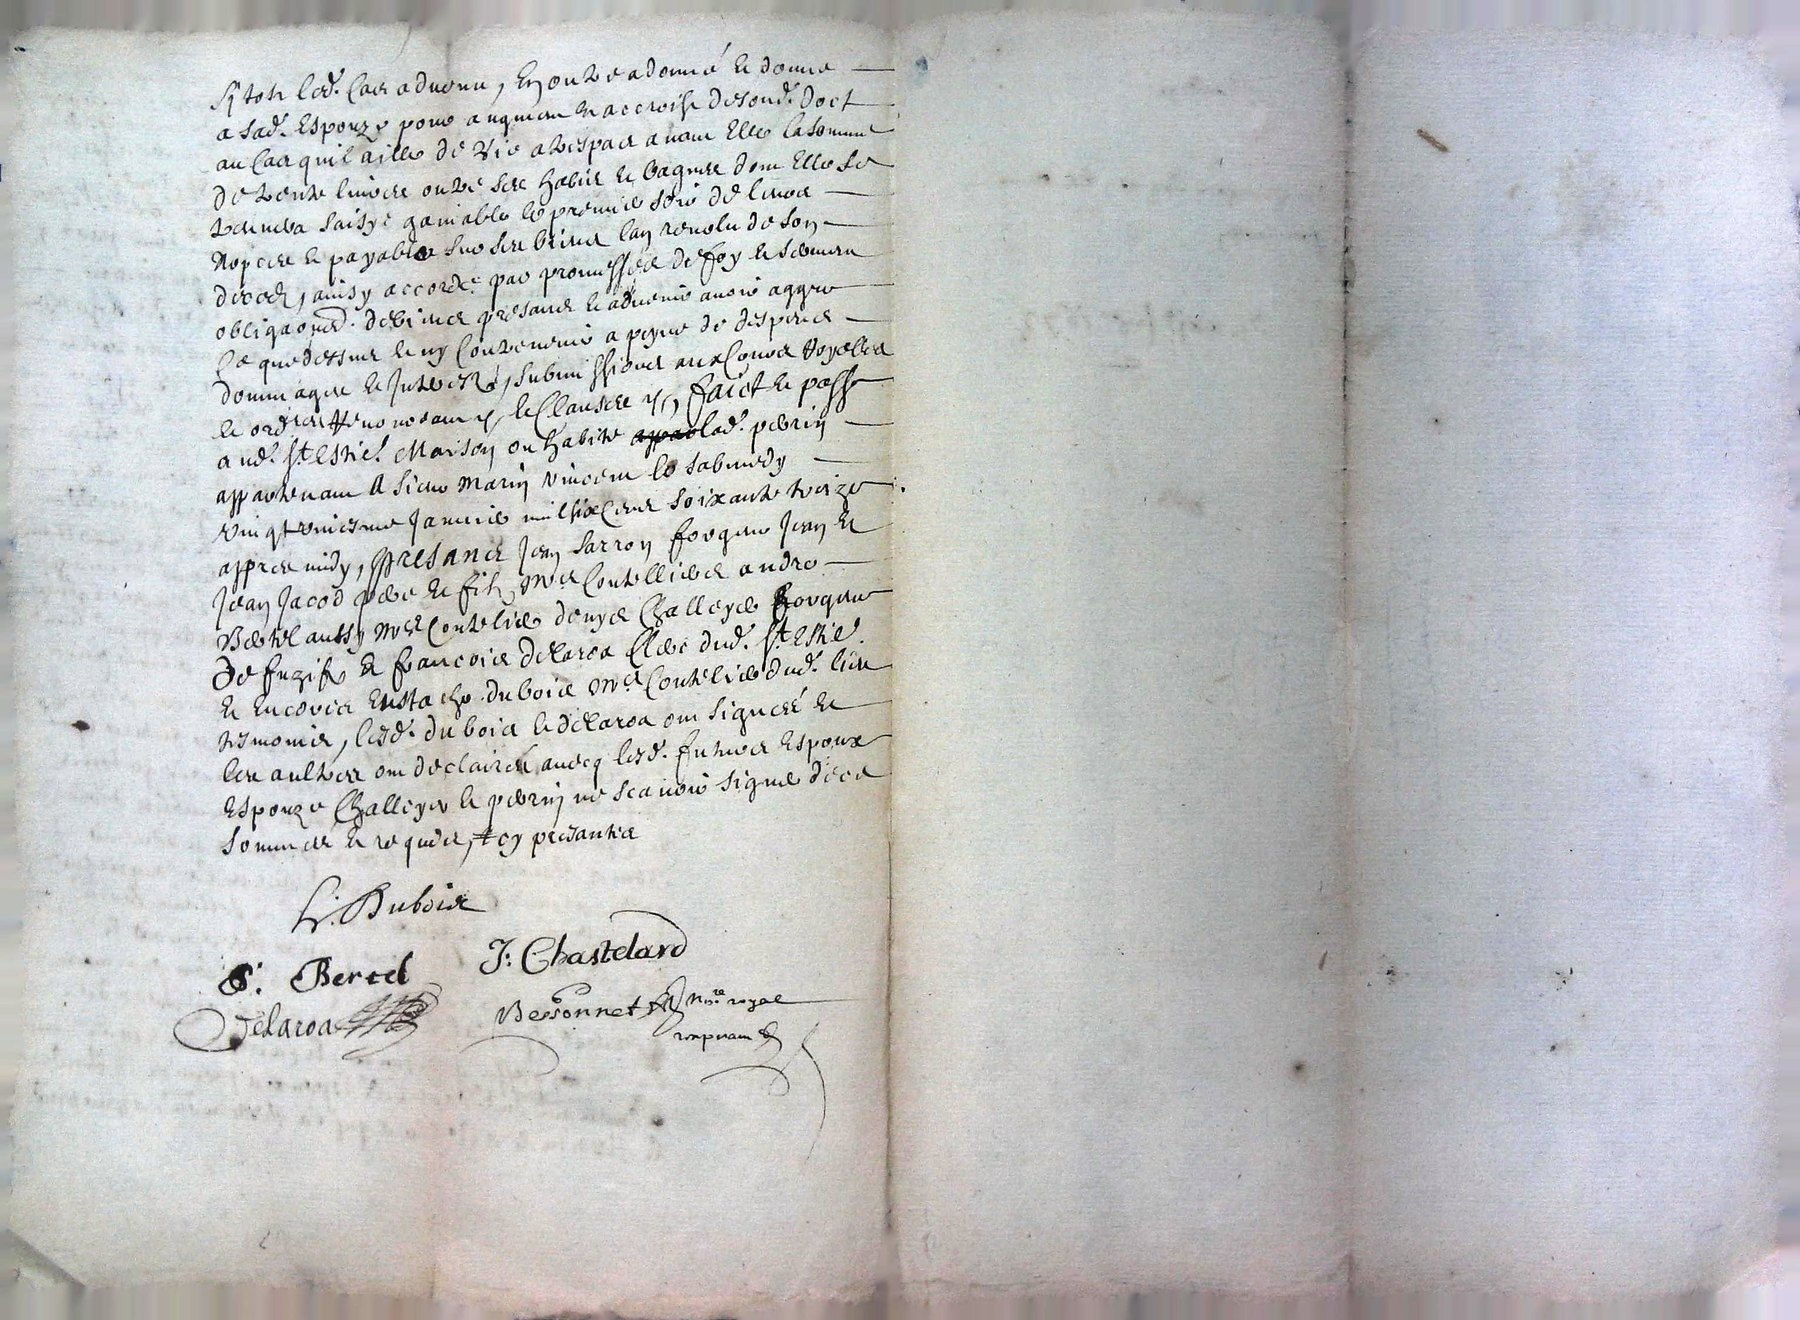 sy tost led. cas advenu, En outre a donné et donne
a sad. Espouze pour augment et accroist de sond. doct
au cas quil aille de vie a trespas avant Elle la somme
de trente livres outre ses habits et bagues dont Elle se
treuvera saisye ganiable le premier soir de leurs
nopces et payable sur ses biens lan revolu de son
deces, ainsy accordé par promesses de foy et serment
obliga^on de biens presans et advenir avoir aggre
ce que dessus et ny contrevenir a peyne de despens
dommages et Interestz, submissions aux cours Royalles
et ord^res renonceant et clauses faict et passé
aud. St Estie. Maison ou habite lad. perrin
appartenant A sieur Marin vincent le sabmedy
vingt uniesme Janvier mil six cens soixante treize
appres midy, presance Jean sarron forgeur Jean et
Jean Jacod pere et fils m^es coutelliers andre
Bertel aussy m^e coutelier denys Challeyer forgeur
de fuzils et francois delaroa clerc dud. St Estie.
et Encores Eustache dubois m^e coutelier dud. lieu
tesmoins, lesd. dubois et delaroa ont signés et
les aultres ont declairé avecq lesd. futurs Espoux
Espouze Challeyer et perrin ne scavoir signer de ce
sommes et requis, et oy presantes
Dubois
Bertel
J: Chastelard
Delaroa
Bessonnet No^re royal